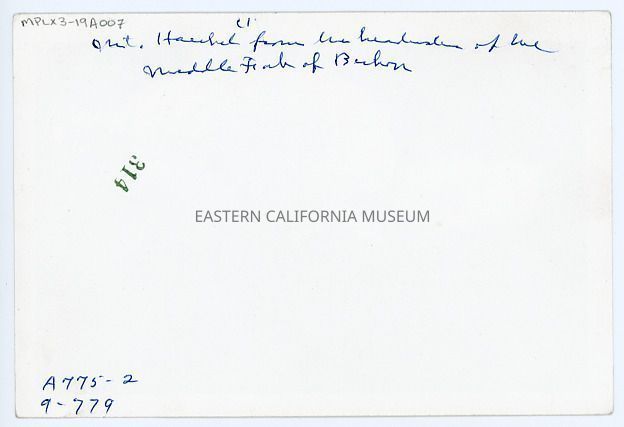 MPLX3-19A007
Mt. Haeckel from the headwaters of the
Middle Fork of Bishop
314
EASTERN CALIFORNIA MUSEUM
A775-2
9-779